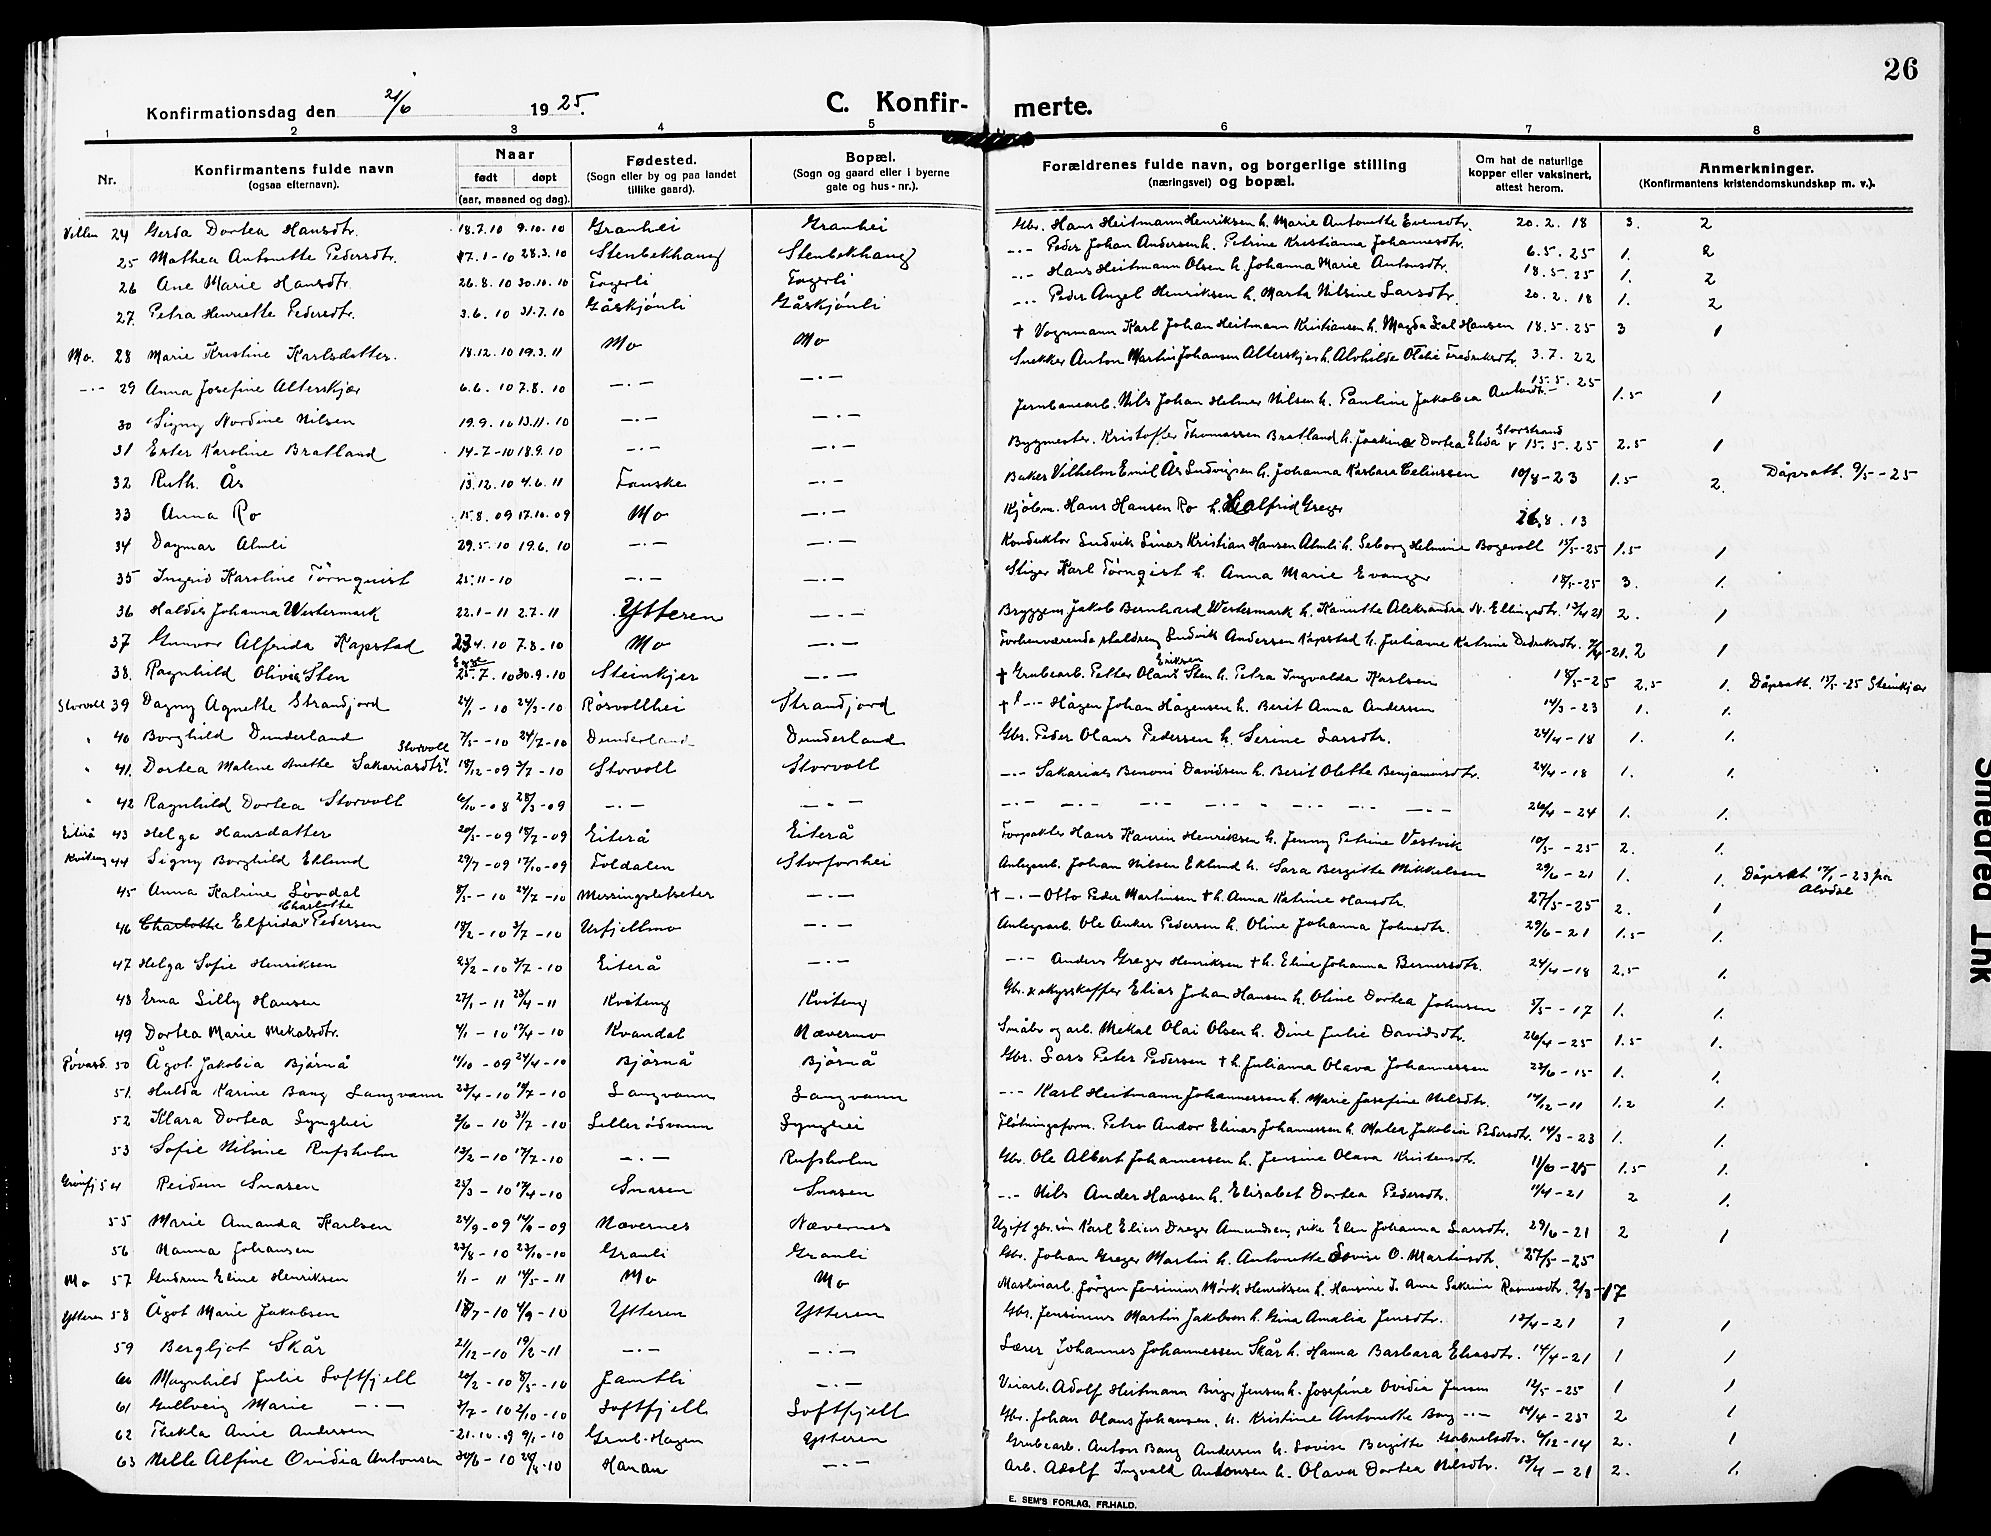 26
Konfirmationsdag den 21/6 1925. C. Konfir- merte.
1 2 3 4 5 6 7 8
Nr. Konfirmantens fulde navn (ogsaa efternavn). Naar født døpt (aar, maaned og dag). Fødested. (Sogn eller by og paa landet tillike gaard). Bopæl. (Sogn og gaard eller i byerne gate og hus-nr.). Forældrenes fulde navn, og borgerlige stilling (næringsvei) og bopæl. Om hat de naturlige kopper eller vaksinert, attest herom. Anmerkninger. (Konfirmantens kristendomskundskap m. v.).
24 Gerda Dortea Hansdtr. 18.7.10 9.10.10 Granhei Granhei Gbr. Hans Heitmann Henriksen h. Marie Antonette Evensdtr. 20.2.18 3. 2
25 Mathea Antonette Pedersdtr. 17.1-10 28.3.10 Stenbekhaug Stenbekhaug -·- Peder Johan Andersen h. Petrine Kristianna Johannesdtr. 6.5.25 1. 2
26 Ane Marie Hansdtr. 26.8.10 30.10.10 Fagerli Fagerli -·- Hans Heitmann Olsen h. Johanna Marie Antonsdtr. 18.5.25 1. 2
27. Petra Henriette Pedersdtr. 3.6.10 31.7.10 Gåskjønli Gåskjønli -·- Peder Angel Henriksen h. Marta Nilsine Larsdtr. 20.2.18 1. 2
Mo. 28 Marie Kristine Karlsdatter. 18.12.10 19.3.11 Mo Mo † Vognmann Karl Johan Heitmann Kristiansen h. Magda Hansen 18.5.25 3 1
-·- 29 Anna Josefine Alterskjær 6.6.10 7.8.10 -·- -·- Snekker Anton Martin Johansen Alterskjær h. Alvhilde Otelie Fredriksdtr. 3.7.22
30 Signy Nordine Nilsen 19.9.10 13.11.10 -·- -·- Jernbanearb. Nils Johan Helmer Nilsen h. Pauline Jakobea Antondtr. 15.5.25 1.5 1
31 Ester Karoline Bratland 14-7-10 18.9.10 -·- -·- Bygmester. Kristofer Thomassen Bratland h. Joakine Dortea Elida Storstrand 15.5.25 2.5 1
32 Ruth Ås 13.12.10 4.6.11 Fauske -·- Baker Vilhelm Emil Ås Ludvigsen h. Johanna Barbara Celiussen 10/8-23 1.5 2. Dåpsatt. 9/5-25
33 Anna Ro 15.8.09 17.10.09 Mo -·- Kjøbm. Hans Hansen Ro h. Halfrid Greger 26.8.13
34 Dagmar Almli 29.5.10 19.6.10 -·- -·- Konduktør Ludvik Linas Kristian Hansen Almli h. Seborg Helmine Bogevoll 15/5-25 1.5 1
35 Ingrid Karoline Törnquist 25.11-10 -·- -·- Stiger Karl Törnqist h. Anna Marie Evanger 18/5-25 3. 1.
36 Haldis Johanna Westermark 22.1-11 2.7-11 Ytteren -·- Bryggem. Jakob Bernhard Westermark h. Hanette Aleksandra N. Ellingsdtr. 2. 1
37 Gunvor Alfrida Kapstad 23.4.10 7.8-10 Mo -·- Forhenværende staldreng Ludvik Andersen Kapstad h. Juliane Katrine Didriksdtr. -21. 2 1
38. Ragnhild Olivia Sten 25.7.10 30.9.10 Steinkjer -·- † Grubearb. Petter Olaus Eriksen Sten h. Petra Ingvalda Karlsen 18/5-25 2.5 1. Dåpsatt. -25 Steinkjær
Storvoll 39 Dagny Agnette Strandjord 24/1-10 24/3-10 Røsvollhei Strandjord † -·- Hågen Johan Hågensen h. Berit Anna Andersen 14/3-23 1. 1.
" 40 Borghild Dunderland 7/5-10 24/7-10 Dunderland Dunderland Gbr. Peder Olaus Pedersen h. Serine Larsdtr. 24/4-18 1. 1.
" 41. Dortea Malene Anette Sakariasdtr. Storvoll 18/12-09 3/7-10 Storvoll Storvoll -·- Sakarias Benoni Davidsen h. Berit Olette Benjaminsdtr. 24/4-18 1. 1.
" 42 Ragnhild Dortea Storvoll 6/10-08 28/3-09 -·- -·- -·- -·- -·- -·- -·- 26/4-24 1. 1.
Eiterå 43 Helga Hansdatter 20/5-09 18/7-09 Eiterå Eiterå Forpakter Hans Kaurin Henriksen h. Jenny Petrine Vestvik 10/5-25 2. 1.
Kviteng 44 Signy Borghild Eklund 29/7-09 17/10-09 Foldalen Storforshei Anlegsarb. Johan Nilsen Eklund h. Sara Bergitte Mikkelsen 29/6-21 1. 1. Dåpsatt 17/1-23 fra Alvdal
45 Anna Katrine Løvdal 8/5-10 24/7-10 Messingsletseter -·- † -·- Otto Peder Martinsen † h. Anna Katrine Hansdtr. 27/5-25 2. 1
46 Charlotte Elfrida Charlotte Pedersen 18/2-10 3/7-10 Urfjellmo -·- Anlegsarb. Ole Anker Pedersen h. Oline Johanna Johnsdtr. 29/6-21 1.5 1.
47 Helga Sofie Henriksen 25/2-10 3/7-10 Eiterå -·- -·- Anders Greger Henriksen † h. Eline Johanna Bernersdtr. 24/4-18 2.5 1.
48 Erna Lilly Hansen 27/1-11 23/4-11 Kviteng Kviteng Gbr. skysskaffer Elias Johan Hansen h. Oline Dortea Johnsen 5/5-17 1. 1.
49 Dortea Marie Mekalsdtr. 4/1-10 17/4-10 Kvandal Nævermo Småbr og arb. Mekal Olai Olsen h. Dine Julie Davidsdtr. 26/4-25 1.5 1.
50 Ågot Jakobia Bjørnå 11/10-09 24/4-10 Bjørnå Bjørnå Gbr. Lars Peter Pedersen † h. Julianna Olava Johannessen 23/6-15 1. 1.
51. Hulda Karine Bang Langvann 23/4-10 10/7-10 Langvann Langvann -·- Karl Heitmann Johannessen h. Marie Josefine Nilsdtr. 14/12-11 1.2 1.
52 Klara Dortea Lynghei 2/6-10 31/7-10 Lillerødvann Lynghei Fløtningsform. Petro Andor Elinas Johannessen h. Malea Jakobia Pedersdtr. 14/3-23 1. 1.
53 Sofie Nilsine Rufsholm 13/2-10 17/7-10 -·- Rufsholm Gbr. Ole Albert Johannessen h. Jensine Olava Kristensdtr. 11/6-25 1.5 1.
Grønfj 54 Reidun Snasen 25/3-10 17/4-10 Snasen Snasen -·- Nils Ander Hansen h. Elisabet Dortea Pedersdtr. 11/4-21 2 1.
55 Marie Amanda Karlsen 24/9-09 -09 Nævernes Nævernes Ugift gbr.søn Karl Elias Dreger Amundsen, pike Elen Johanna Larsdtr. 29/6-21 2 1
56 Nanna Johansen 23/8-10 23/10-10 Granli Granli Gbr. Johan Greger Martin h. Antonette Lovise O. Martinsdt. 27/5-25
Mo 57 Gudrun Eline Henriksen 1/1-11 14/5-11 Mo Mo Maskinarb. Jørgen Jensinius Mørk Henriksen h. Hansine J. Anne Sakrine Rasmusdtr. 2/3-17
Ytteren 58 Ågot Marie Jakobsen 18/7-10 4/9-10 Ytteren Ytteren Gbr. Jensinius Martin Jakobsen h. Gina Amalia Jensdtr. 13/4-21 1 1
59 Bergljot Skår 21/12-10 19/2-11 -·- -·- Lærer Johannes Johannessen Skår h. Hanna Barbara Eliasdtr. 14/4-21 1 1
60 Magnhild Julie Loftfjell 20/2-10 8/5-10 Jamtli -·- Veiarb. Adolf Heitmann Birger Jensen h. Josefine Ovidia Jensen 12/5-25 1 1
61 Gullveig Marie -·- 3/7-10 2/10-10 Loftfjell Loftfjell Gbr. Johan Olaus Johansen, h. Kristine Antonette Bang -·- 14/4-25 2 1
62 Thekla Anie Andersen 21.10.09 9/1-10 Grub-Hagen Ytteren Grubearb. Anton Bang Andersen h. Lovise Bergitte Gabrielsdtr. 6/12-14 2. 1
63 Nelle Alfine Ovidia Antonsen 30/6-10 -10 Hanan -·- Arb. Adolf Ingvald Antonsen h. Olava Dortea Nilsdtr. 13/4-21 2. 1.
E. SEM'S FORLAG, FR.HALD.
Smeared Ink